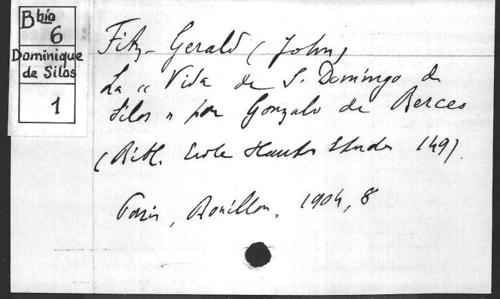 Bbio
6
Dominique
de Silos
1
Fitz-Gerald (John)
La « Vida de S. Domingo de
Silos » por Gonzalo de Berceo
(Bibl. Ecole Hautes Etudes 149).
Paris, Bouillon, 1904, 8